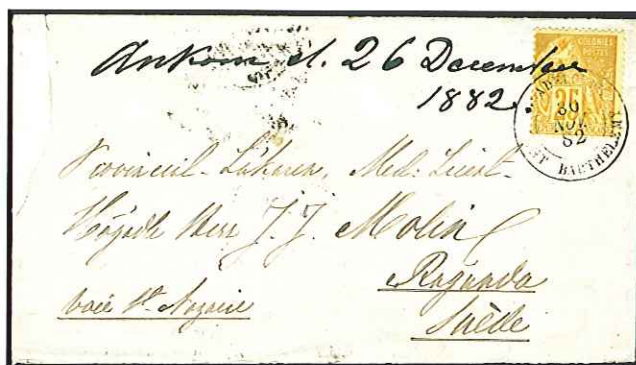 Ankom d. 26 December
1882.
COLONIES
POSTES
25
NOV
82
ST BARTHELEMY
Provincial-Läkaren, Med: Licent-
Högädle Herr J. J. Molin
Ragunda
voie St. Nazaire
Suède